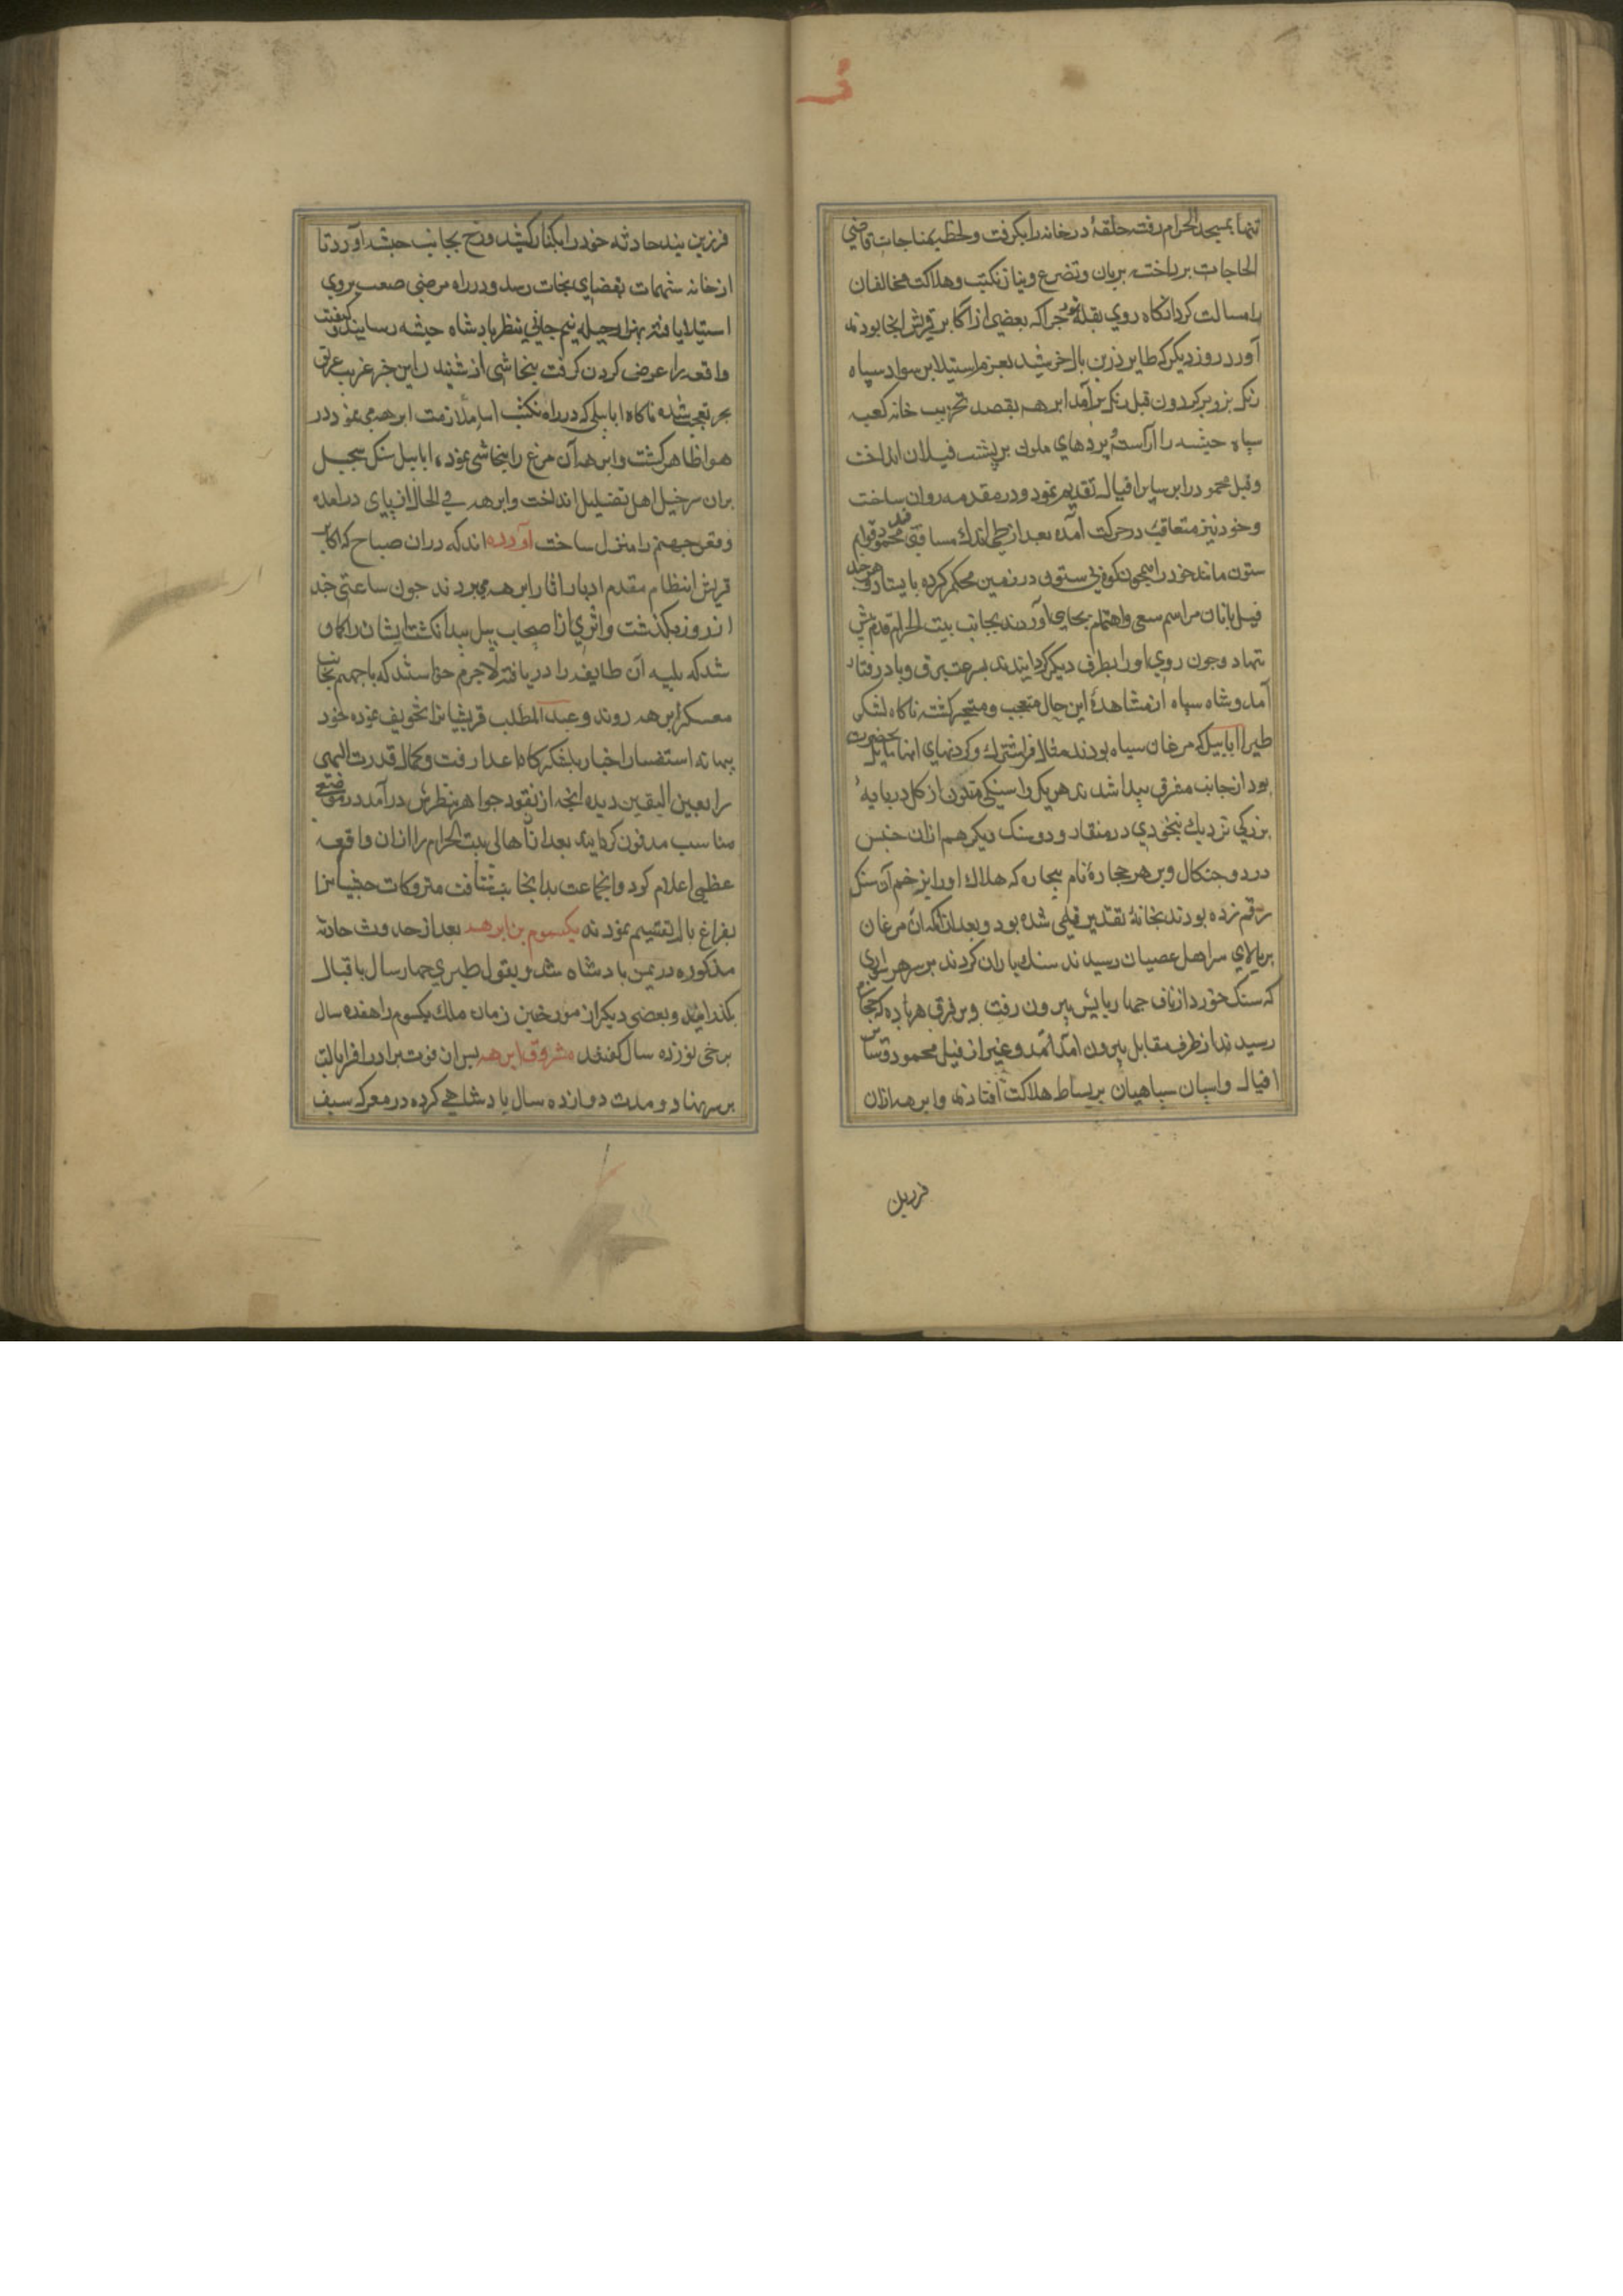 تنها بمسجد الحرام رفت حلقهٔ در خانه را بکرفت و لحظهٔ بمناجات قاضی
الحاجات برداخته بزبان تضرع و نیاز نکبت و هلاکت مخالفان
را مسالت کرد آنکاه روی بقلهٔ حرا که بعضی از اکابر قریش آنجا بودند
آورد روز دیکر که طایر زرین بال خورشید بعزم استیلا بر سواد سپاه
زنک بزوبر کردون قبل رنک برآمد ابرهه بقصد تخریب خانه کعبه
سپاه حبشه را آراسته بردهای ملون بر پشت فیلان انداخت
وفیل محمود را بر سایر افیال تقدیم نمود و در مقدمه روان ساخت
و خود نیز متعاقب در حرکت آمده بعد از طی اندک مسافتی فیل محمود قوایم
ستون مانند خود را همچون کوه بی ستون در زمین محکم کرده بایستاد و هرچند
فیل بانان مراسم سعی و اهتمام بجای آوردند بجانب بیت الحرام قدم پیش
ننهاد و جون روی او را بطرف دیکر کردانیدند بسرعت برق و باد رفتار
آمد و شاه سپاه از مشاهدهٔ این حال متعجب و متحیر کشته ناکاه لشکر
طیرا ابابیل که مرغان سیاه بودند مثل فراشترک و کردنهای آنها مایل بخضرت
بود از جانب مشرق پیدا شدند هر یک را سنکی متلون از کل در پایهٔ
بزرکی نزدیک بنخودی در منقار و دو سنک دیکر هم ازان جنس
در دو جنکال و بر هر حجارهٔ نام بیچاره که هلاک او را بزخم آن سنک
رقم زده بودند بخانهٔ تقدیر قلمی شده بود و بعد از آنکه آن مرغان
بر بالای سر اهل عصیان رسیدند سنک باران کردند بر سر هر سواری
که سنک خورد از ناف جهار پایش بیرون رفت و بر فرق هر پیاده که حجاره
رسید از طرف مقابل بیرون آمد القصه و غیر از فیل محمود تمامت
افیال و اسپان سپاهیان بر بساط هلاکت افتادند و ابرهه ازان
فرزین
فرزین بند حادثه خود را بکنار کشید و رخ بجانب حبشه آورد تا
از خانه شهمات بفضای نجات رسد و در راه مرضی صعب بر وی
استیلا یافته بهزار حیله نیم جانی بنظر پادشاه حبشه رسانید و کیفیت
واقعه را عرض کردن کرفت نجاشی از شنیدن این خبر غریب غرق
بحر تعجب شده ناکاه ابابیلی که در راه نکبت اسا ملازمت ابرهه می نمود در
هوا ظاهر کشت و ابرهه آن مرغ را بنجاشی نمود ابابیل سنک سجیل
بران سر خیل اهل تضلیل انداخت و ابرهه فی الحال از پای درآمده
و قعر جهنم را منزل ساخت آورده اند که دران صباح که اکابر
قریش انتظام مقدم ادبار اثار ابرهه می بردند جون ساعتی جند
از روز بکذشت و اثری از اصحاب پیل پیدا نکشت ایشان را کمان
شد که بلیه آن طایفه را دریافته لاجرم خواستند که باجمعهم بجانب
معسکر ابرهه روند و عبد المطلب قریشیانرا تخویف نموده خود
ببهانه استفسار اخبار بلشکرکاه اعدا رفت و کمال قدرت الهی
را بعین الیقین دیده آنجه از نقود جواهر بنظرش درآمد در موضعی
مناسب مدفون کردانید بعد از آن اهالی بیت الحرام را ازان واقعه
عظمی اعلام کرد و آنجماعت بدانجانب شتافت متروکات حبشیانرا
بفراغ بال تقسیم نمودند یکسوم بن ابرهه بعد از حدوث حادثه
مذکوره در یمن پادشاه شد و بقول طبری جهار سال باقبال
بکذرانید و بعضی دیکر از مورخین زمان ملک یکسوم را هفده سال
برخی نوزده سال کفتند مسروق ابرهه پس از فوت برادر افر ایالت
بر سر نهاد و مدت دوازده سال پادشاهی کرده در معرکه سیف